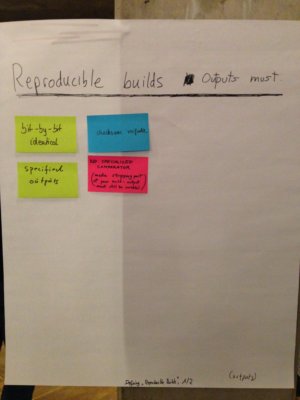 Reproducible builds Outputs must
bit-by-bit
identical
checksum
specified
outputs
NO SPECIALIZED
COMPARATOR
(make stripping part
of your build: output
must still be usable)
(outputs)
Defining "Reproducible Builds", 1/2